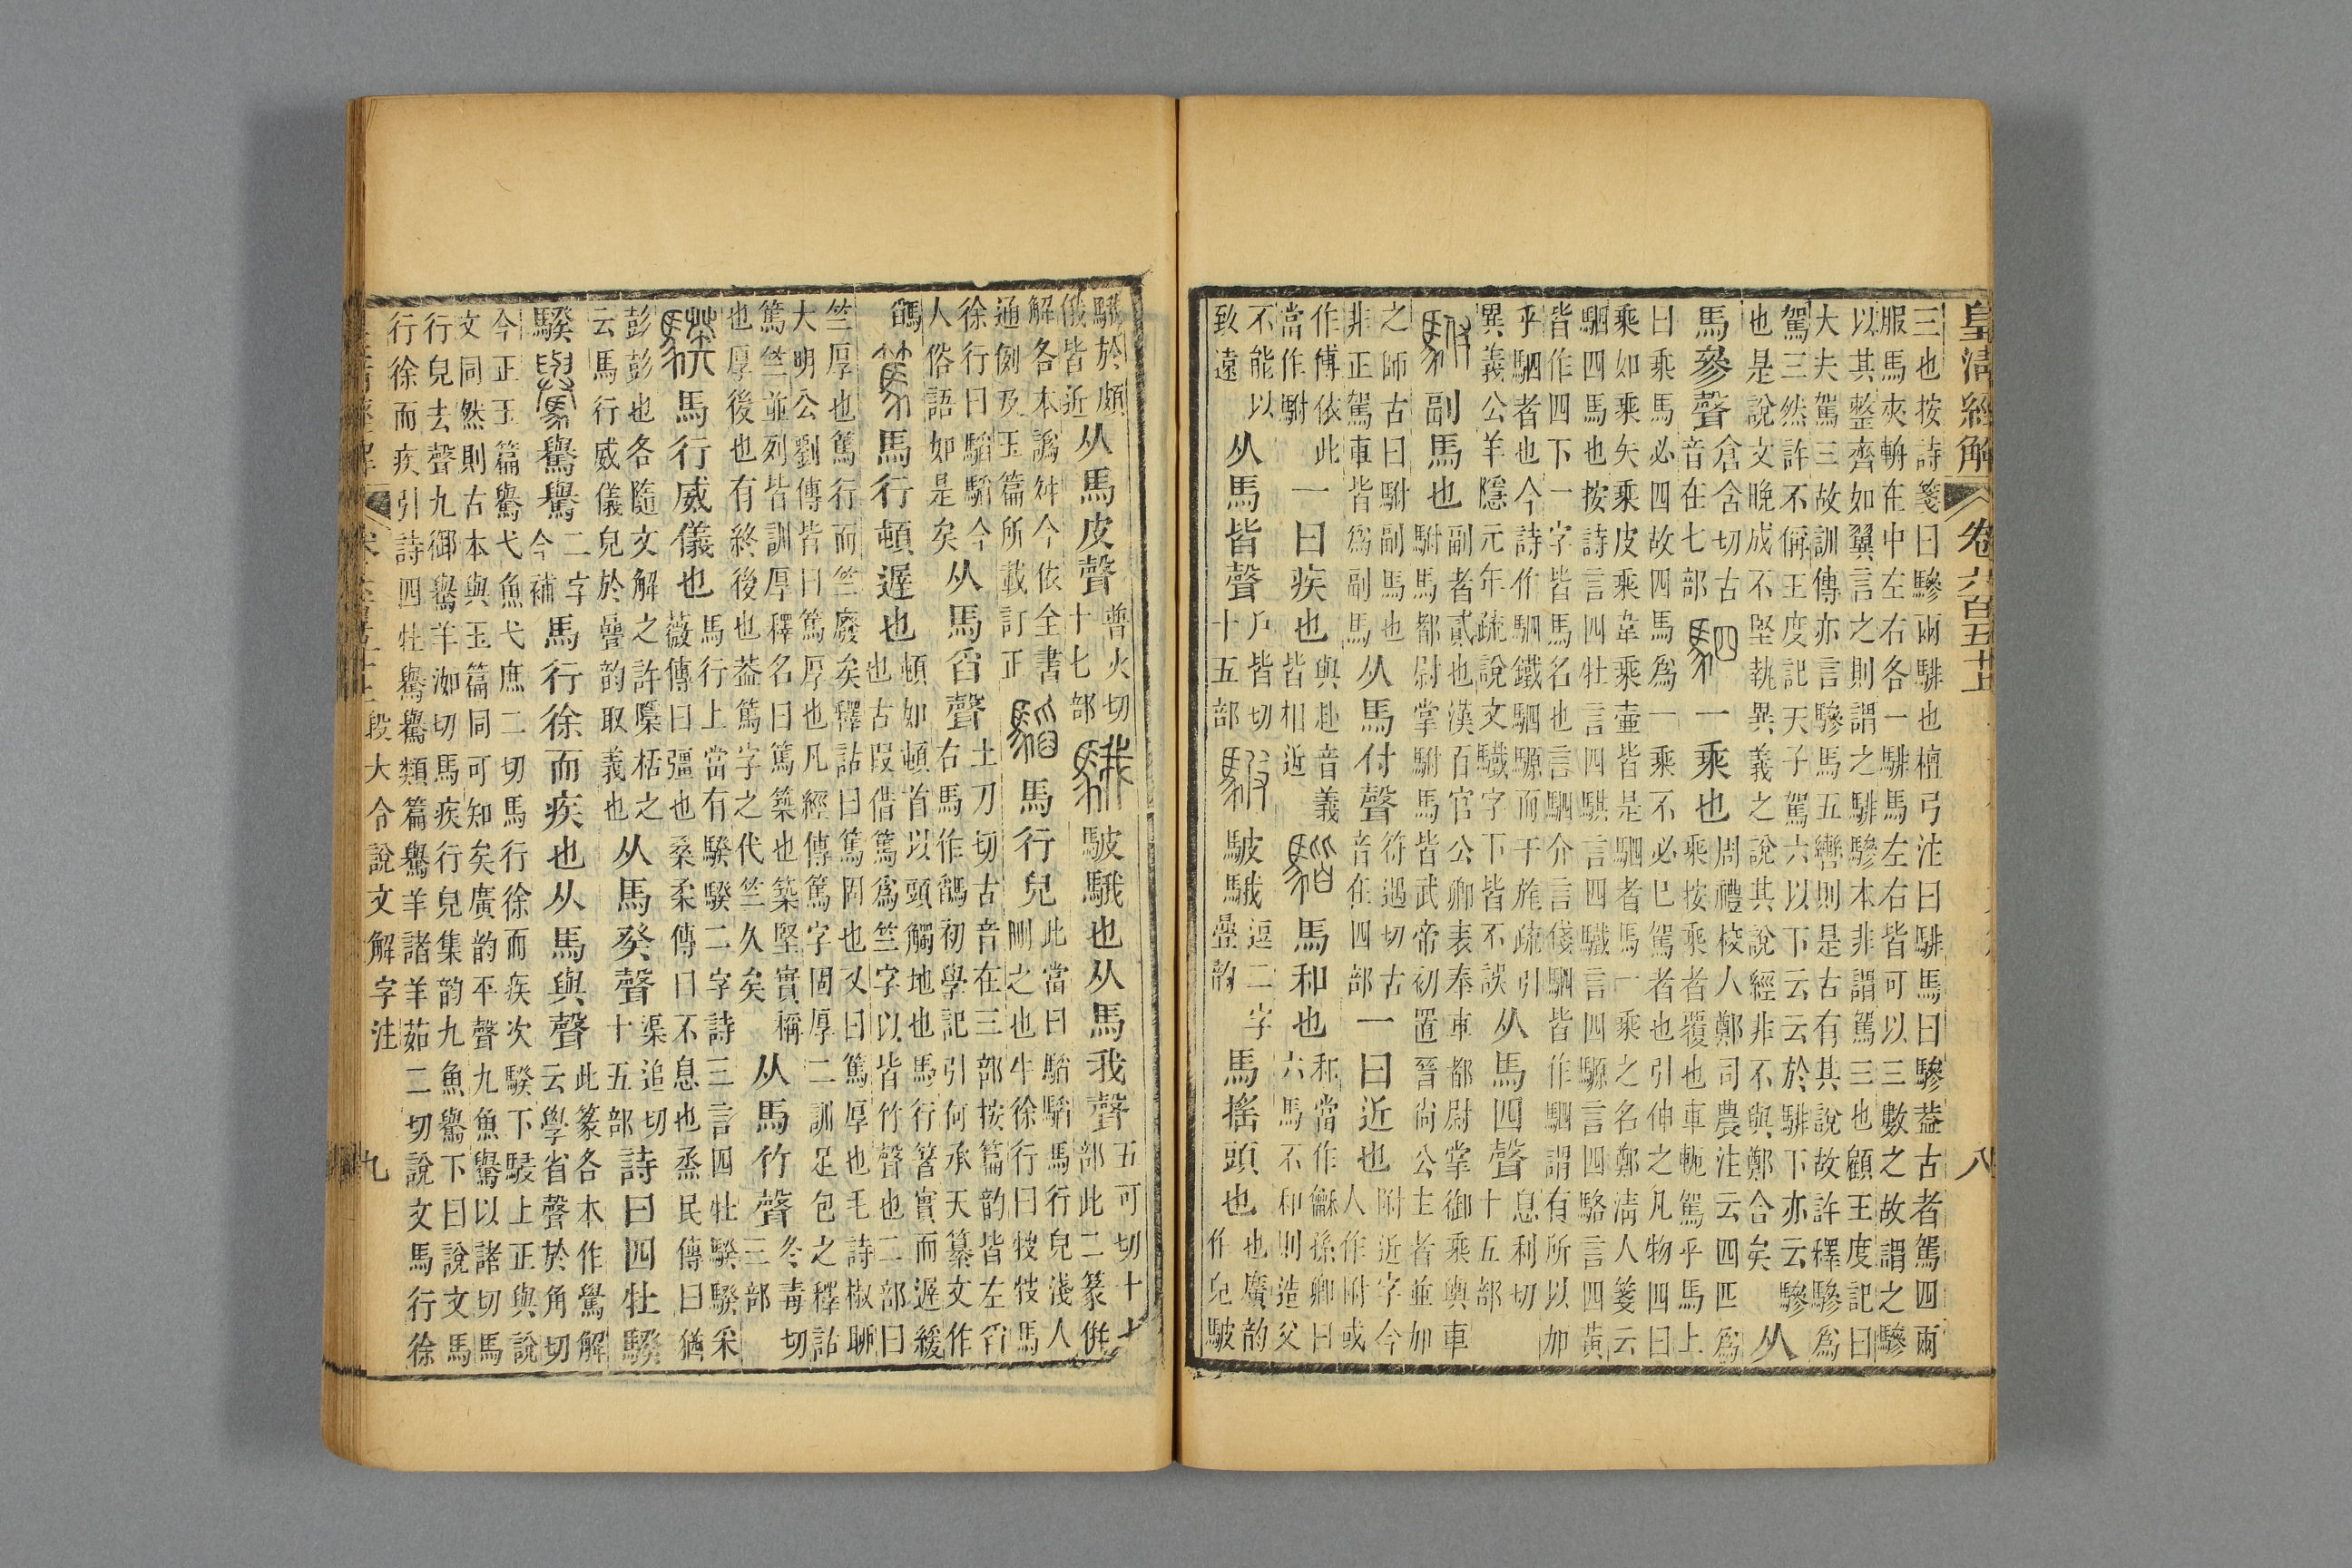 皇清經解 卷六百五十 八
三也按詩箋曰驂兩騑也檀弓注曰騑馬曰驂葢古者駕四兩
服馬夾輈在中左右各一騑馬左右皆可以三數之故謂之驂
以其整齊如翼言之則謂之騑驂本非謂駕三也顧王度記曰
大夫駕三故訓傳亦言驂馬五轡則是古有其說故許釋驂爲
駕三然許不偁王度記天子駕六以下云云於騑下亦云驂
也是說文晚成不堅執異義之說其說經非不與鄭合矣
从
馬參聲
倉含切古
音在七部
駟
一乘也
周禮校人鄭司農注云四匹爲
乘按乘者覆也車軛駕乎馬上
曰乘馬必四故四馬爲一乘不必巳駕者也引伸之凡物四曰
乘如乘矢乘皮乘韋乘壷皆是駟者馬一乘之名鄭淸人箋云
駟四馬也按詩言四牡言四騏言四驖言四騵言四駱言四黃
皆作四下一字皆馬名也言駟介言俴駟皆作駟謂有所以加
乎駟者也今詩作駟鐵駟騵而干旄疏引
異義公羊隱元年疏說文驖字下皆不誤
从馬四聲
息利切
十五部
駙
副馬也
副者貳也漢百官公卿表奉車都尉掌御乘輿車
駙馬都尉掌駙馬皆武帝初置晉尚公主者並加
之師古曰駙副馬也
非正駕車皆爲副馬
从馬付聲
符遇切古
音在四部
一曰近也
附近字今
人作附或
作傅依此
當作駙
一曰疾也
與赴音義
皆相近
馬和也
和當作龢孫卿曰
六馬不和則造父
不能以
致遠
从馬皆聲
戶皆切
十五部
駊騀
逗二字
疊韵
馬搖頭也
也廣韵
作皃駊
騀於頗
俄皆近
从馬皮聲
普火切
十七部
騀
駊騀也从馬我聲
五可切十七
部此二篆倂
解各本譌舛今依全書
通例及玉篇所載訂正
馬行皃
此當曰騊騊馬行皃淺人
刪之也牛徐行曰㹗㹗馬
徐行曰騊騊今
人俗語如是矣
从馬舀聲
土刀切古音在三部按篇韵皆左舀
右馬作䳓初學記引何承天纂文作
篤
馬行頓遲也
頓如頓首以頭觸地也馬行箸實而遲緩
也古叚借篤爲竺字以皆竹聲也二部曰
竺厚也篤行而竺廢矣釋詁曰篤固也又曰篤厚也毛詩椒聊
大明公劉傳皆曰篤厚也凡經傳篤字固厚二訓足包之釋詁
篤竺並列皆訓厚釋名曰篤築也築堅實稱
也厚後也有終後也葢篤字之代竺久矣
从馬竹聲
冬毒切
三部
騤
馬行威儀也
馬行上當有騤騤二字詩三言四牡騤騤采
薇傳曰彊也桑柔傳曰不息也烝民傳曰猶
彭彭也各隨文解之許檃栝之
云馬行威儀皃於疊韵取義也
从馬癸聲
渠追切
十五部
詩曰四牡騤
騤
𩦡
𩦡𩦡
二字
今補
馬行徐而疾也从馬與聲
此篆各本作鷽解
云學省聲於角切
今正玉篇𩦡弋魚弋庶二切馬行徐而疾次騤下駸上正與說
文同然則古本與玉篇同可知矣廣韵平聲九魚𩦡以諸切馬
行皃去聲九御𩦡羊洳切馬疾行皃集韵九魚𩦡下曰說文馬
行徐而疾引詩四牡𩦡𩦡類篇𩦡羊諸羊茹二切說文馬行徐
段大令說文解字注
九